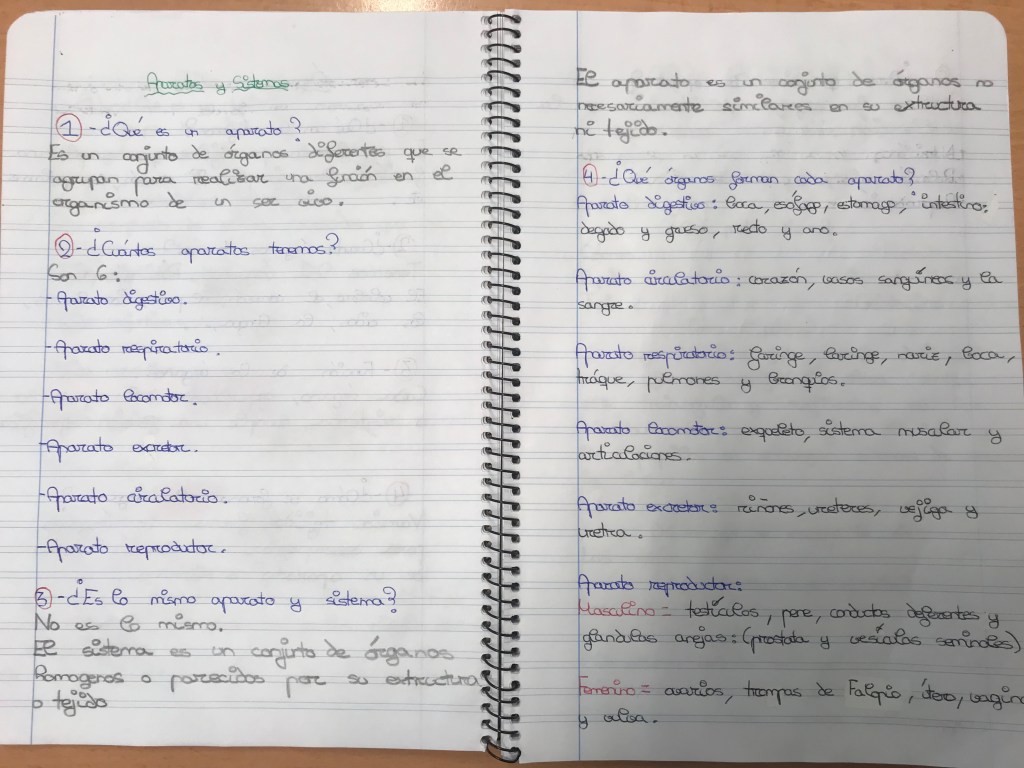 Aparatos y Sistemas
1 - ¿Qué es un aparato?
Es un conjunto de órganos diferentes que se
agrupan para realizar una función en el
organismo de un ser vivo.
2 - ¿Cuántos aparatos tenemos?
Son 6:
- Aparato digestivo.
- Aparato respiratorio.
- Aparato locomotor.
- Aparato excretor.
- Aparato circulatorio.
- Aparato reproductor.
3 - ¿Es lo mismo aparato y sistema?
No es lo mismo.
El sistema es un conjunto de órganos
homogeneos o parecidos por su extructura
o tejido
El aparato es un conjunto de órganos no
necesariamente similares en su extructura
ni tejido.
4 - ¿Qué órganos forman cada aparato?
Aparato digestivo: boca, esófago, estomago, intestino:
delgado y grueso, recto y ano.
Aparato circulatorio: corazón, vasos sanguíneos y la
sangre.
Aparato respiratorio: faringe, laringe, nariz, boca,
tráquea, pulmones y bronquios.
Aparato locomotor: esqueleto, sistema muscular y
articulaciones.
Aparato excretor: riñones, ureteres, vejiga y
uretra.
Aparato reproductor:
Masculino = testículos, pene, conductos deferentes y
glándulas anejas: (prostata y vesículas seminales)
Femenino = ovarios, trompas de Falopio, útero, vagina
y vulva.